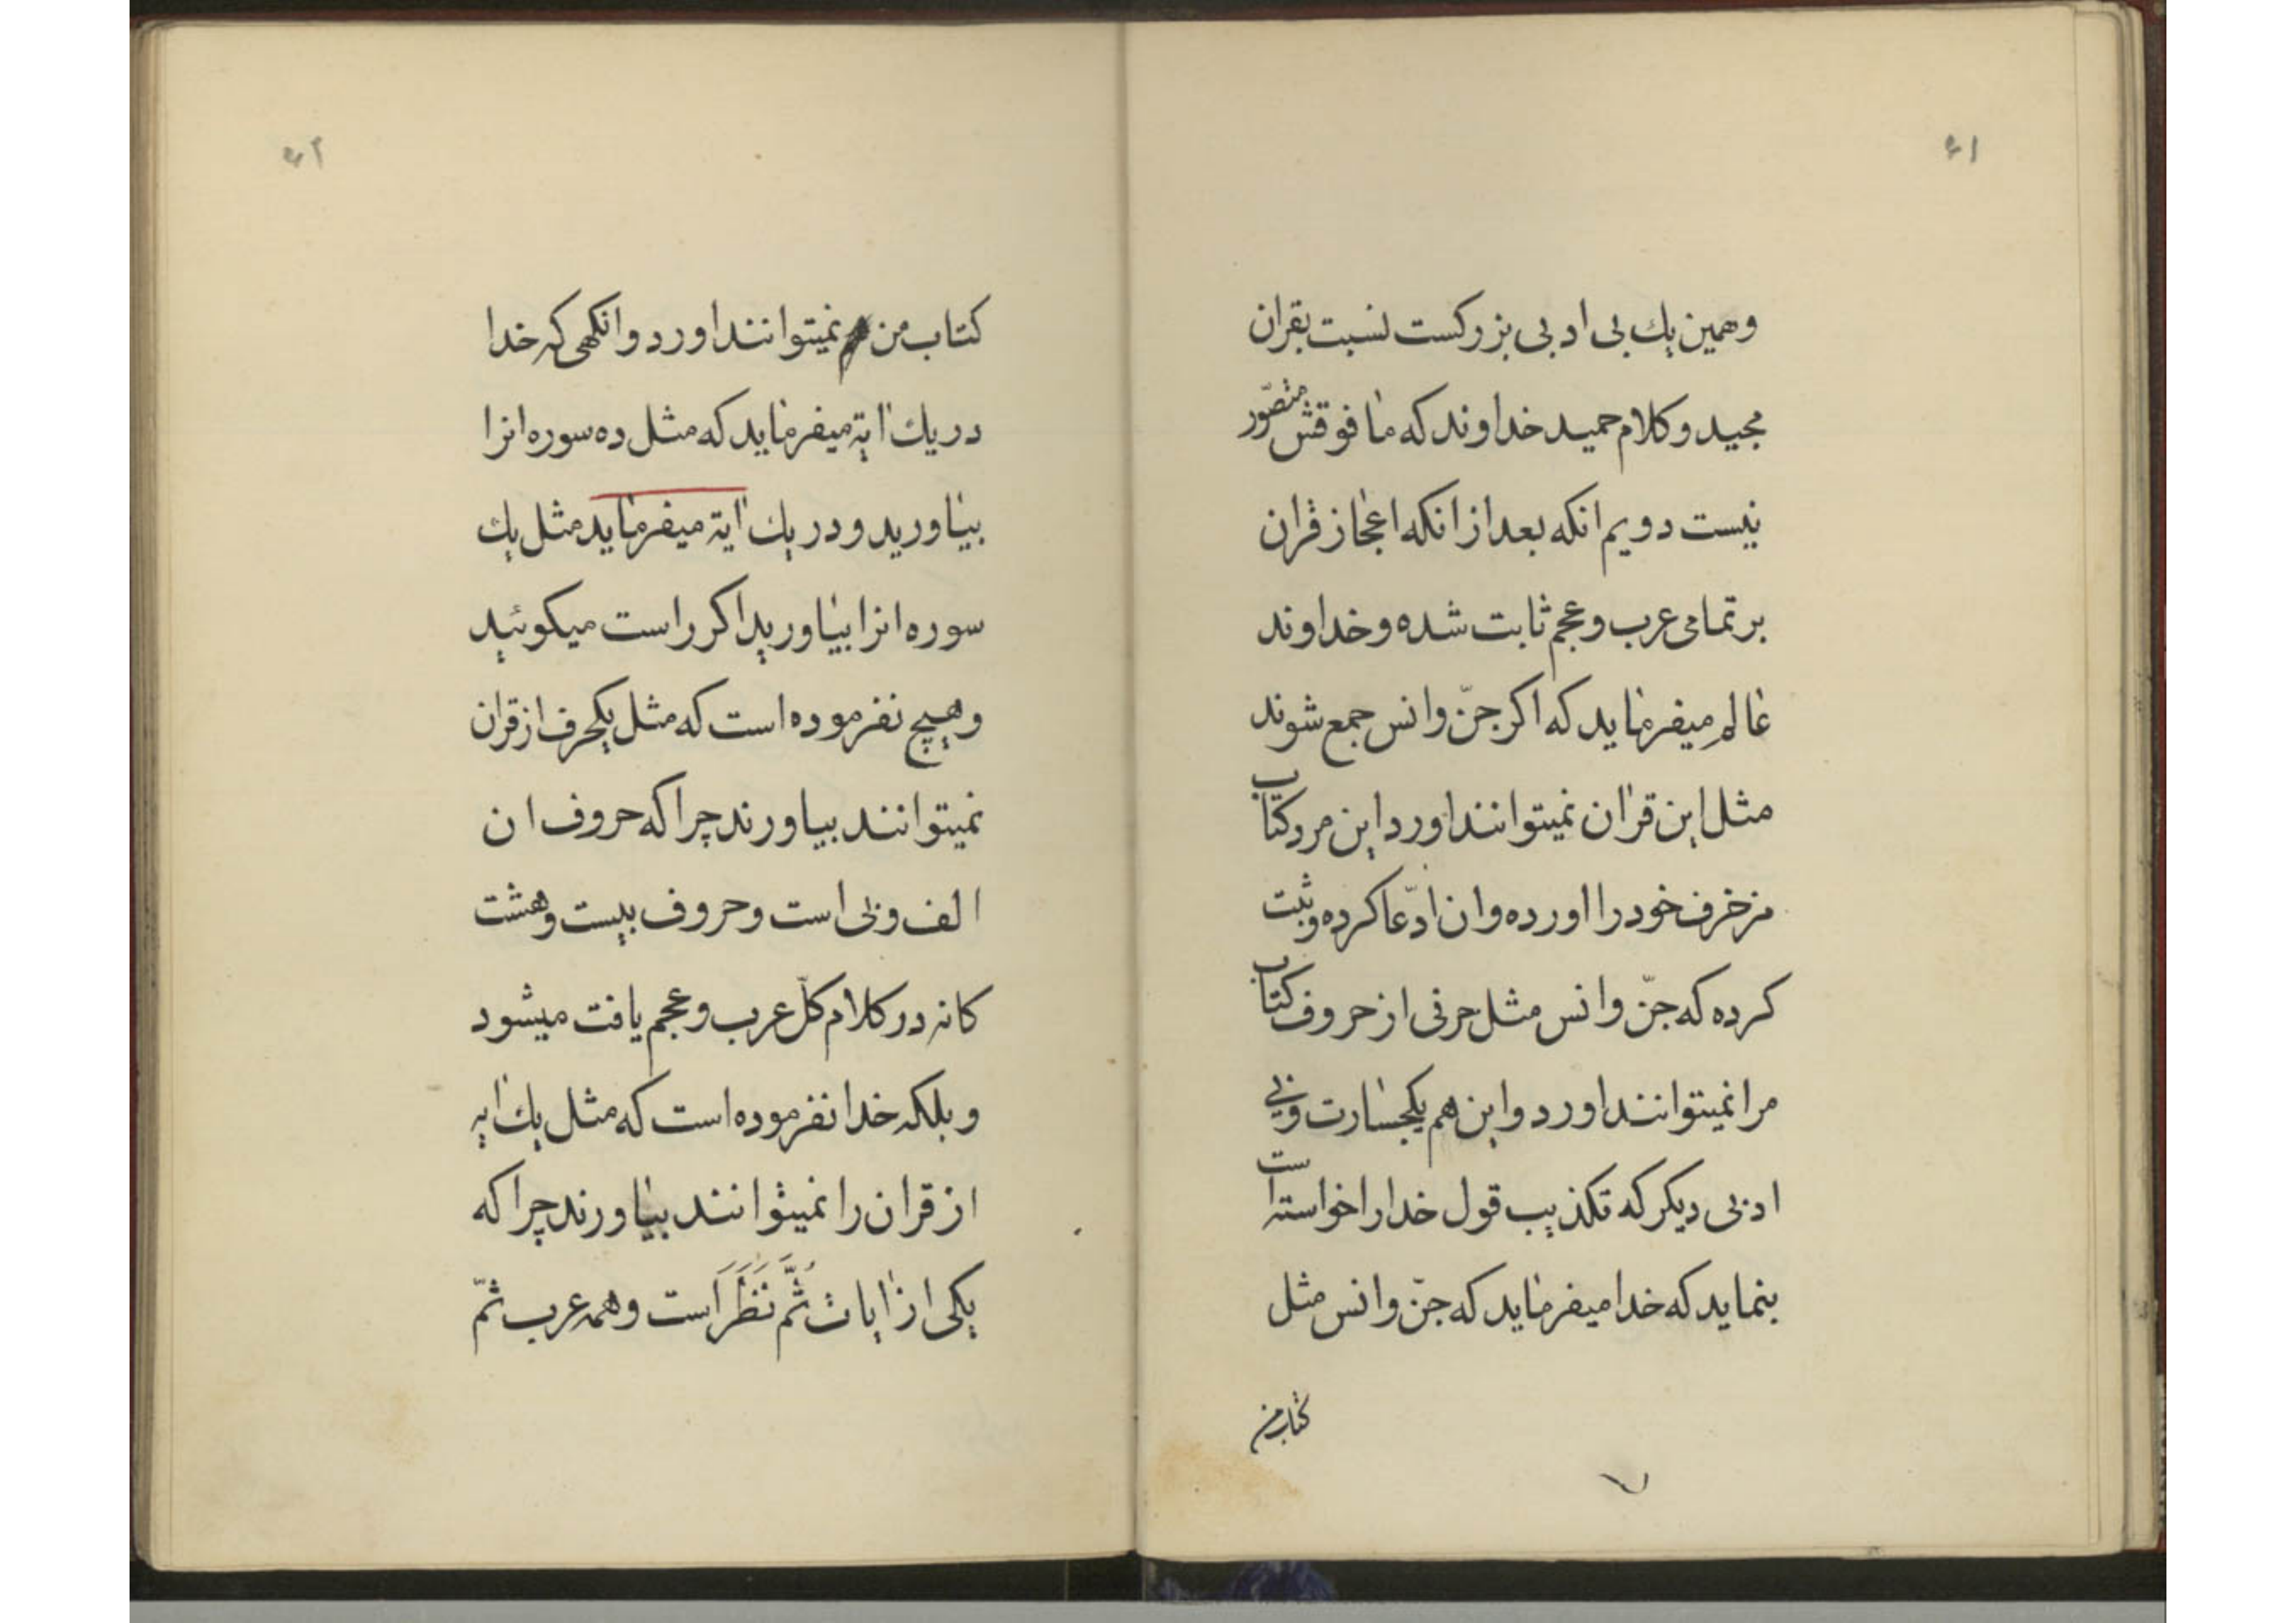 ۶۱
وهمین یك بی ادبی بزرکست نسبت بقران
مجید وکلام حمید خداوند که مافوقش متصّور
نیست دویم انکه بعد از انکه اعجاز قران
بر تمامی عرب وعجم ثابت شده وخداوند
عالم میفرماید که اکر جنّ وانس جمع شوند
مثل این قرٰان نمیتوانند اورد این مرد کتاب
مزخرف خود را اورده وان ادّعا کرده وثبت
کرده که جنّ وانس مثل حرفی از حروف کتاب
مرا نمیتوانند اورد واین هم یکجسارت وبی
ادبی دیکر که تکذیب قول خدا را خواسته است
بنماید که خدا میفرماید که جنّ وانس مثل
کتاب من
۶۲
کتاب من نمیتوانند اورد وانکهی که خدا
در یك ایة میفرماید که مثل ده سوره انرا
بیاورید ودر یك ایة میفرماید مثل یك
سوره انرا بیاورید اکر راست میکوئید
وهیچ نفرموده است که مثل یکحرف از قران
نمیتوانند بیاورند چرا که حروف ان
الف وبی است وحروف بیست وهشت
کانه در کلام کلّ عرب وعجم یافت میشود
وبلکه خدا نفرموده است که مثل یك ایه
از قران را نمیتوانند بیاورند چرا که
یکی از ایات ثُمَّ نَظَرَ است وهمه عرب ثمّ